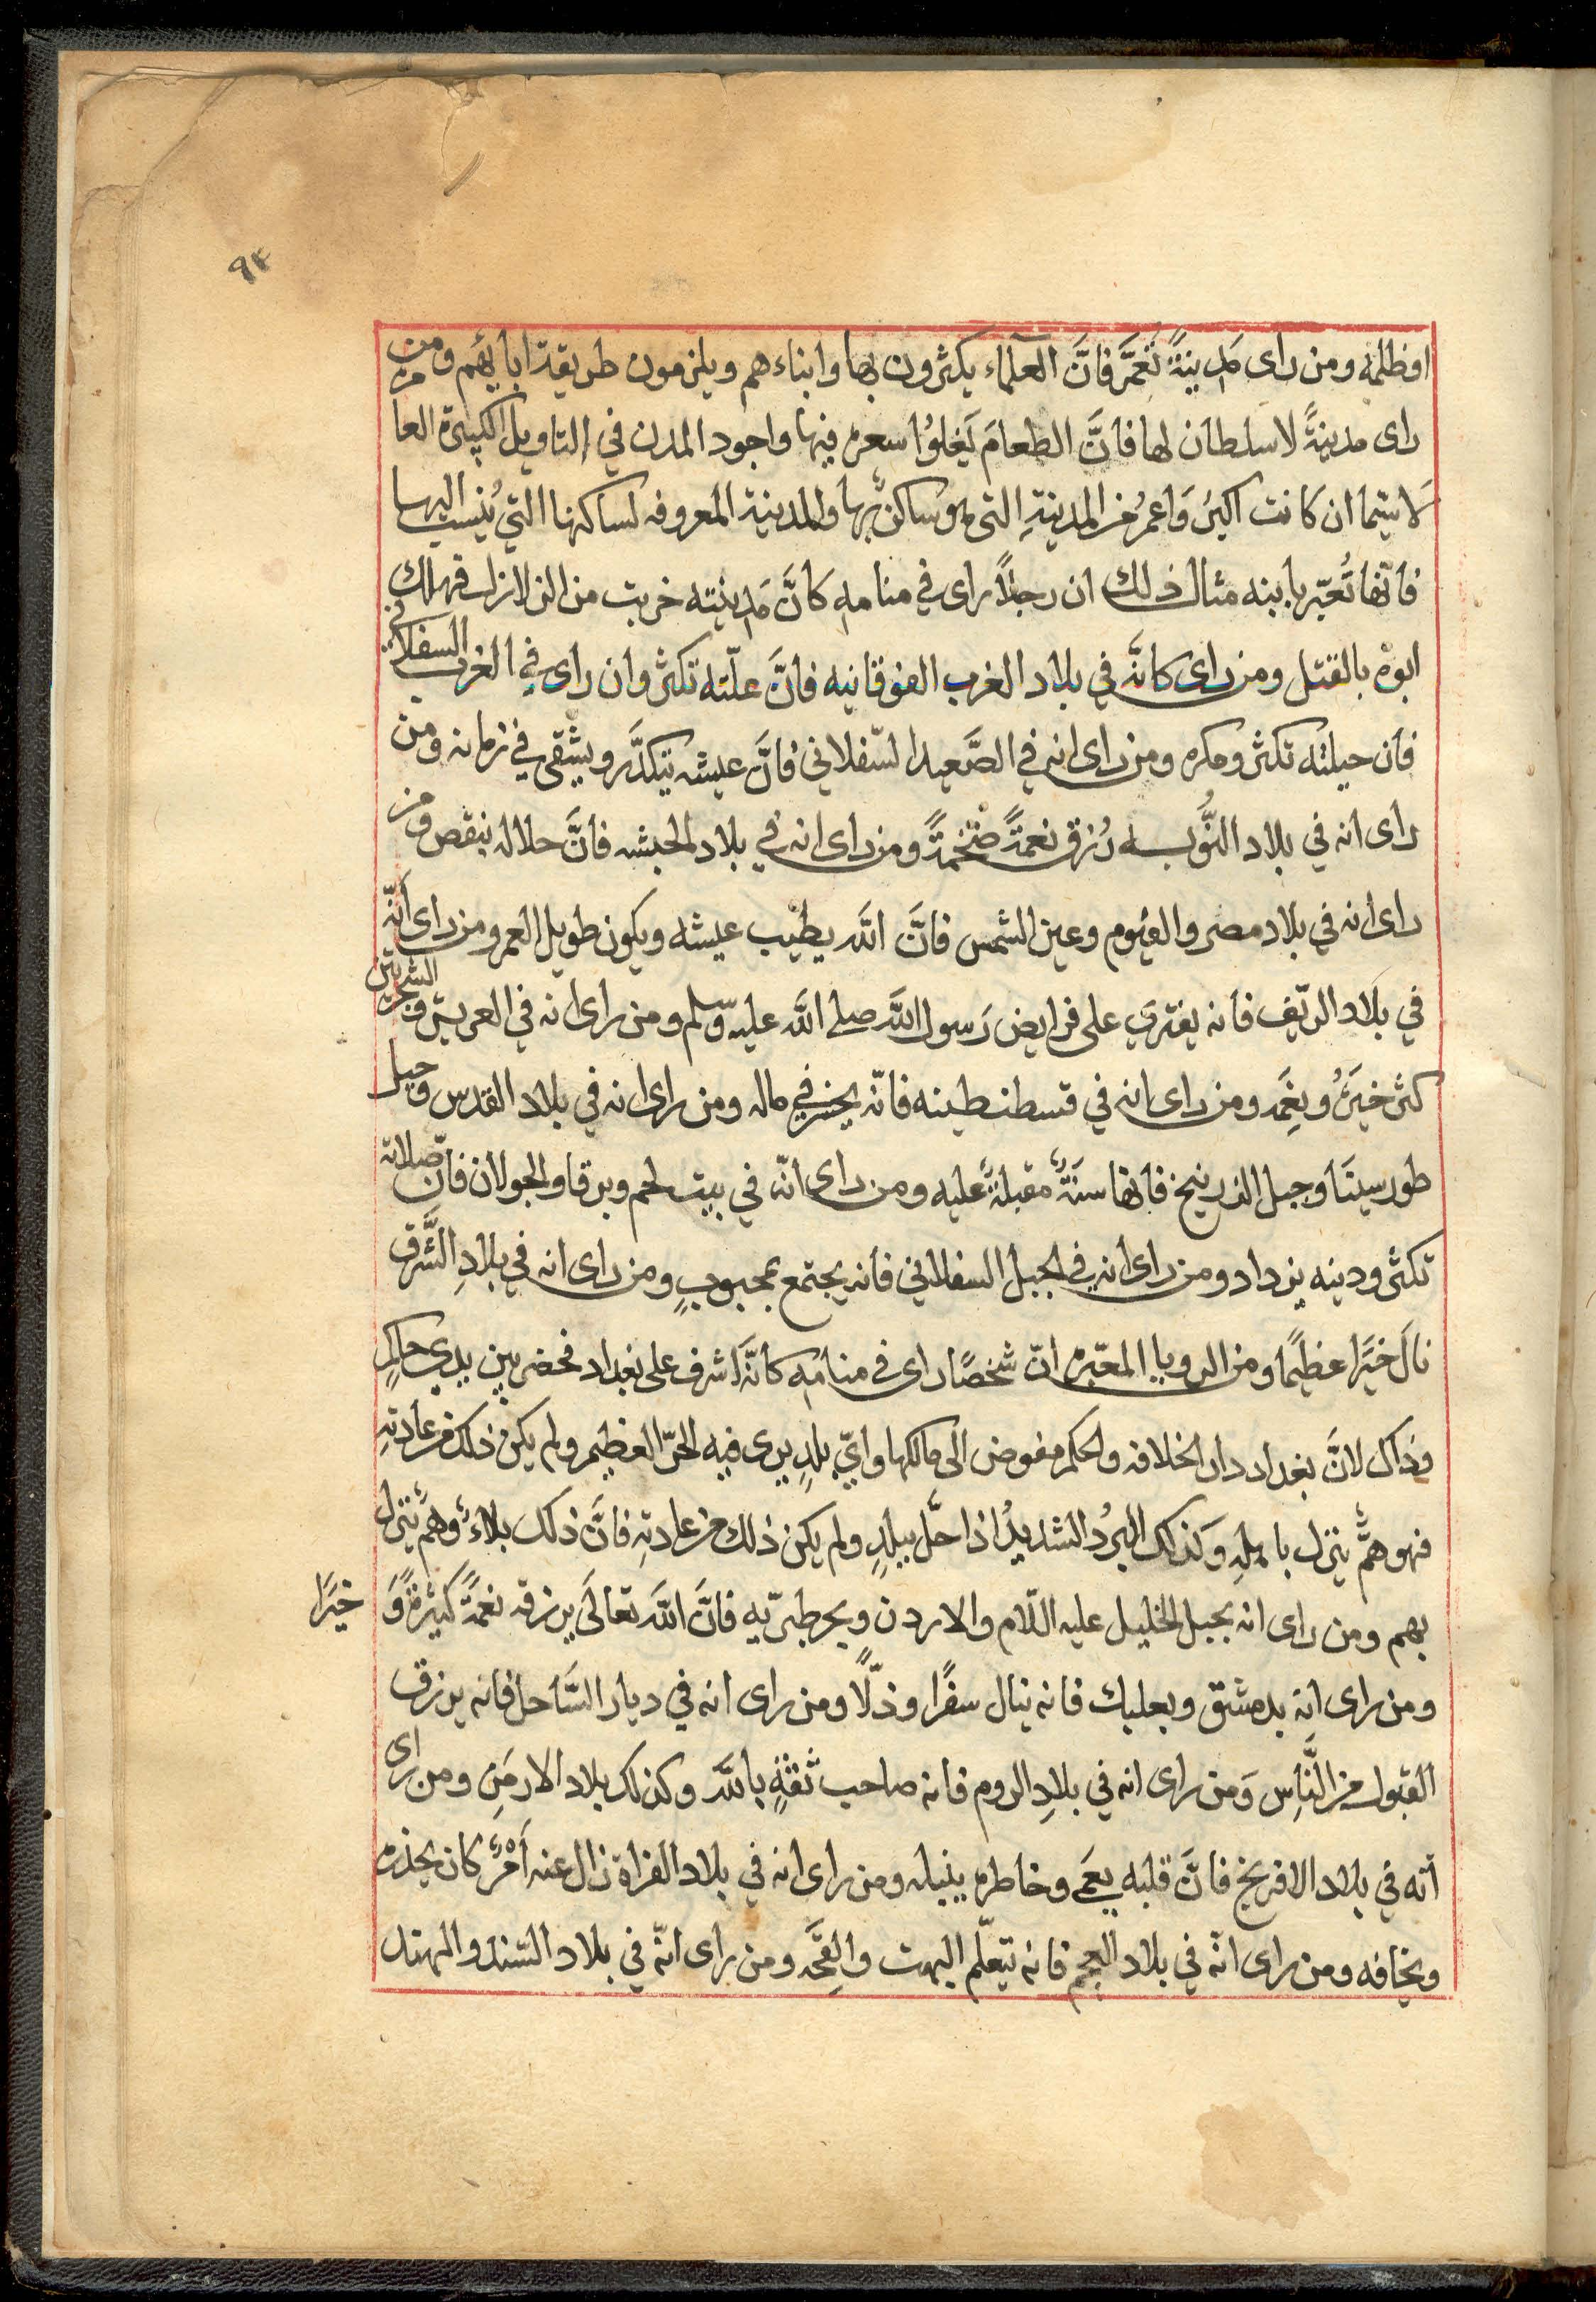 ٩٣
اوظلمه ومن راى مَدينةً تُعَمَّر فانَّ العلماء يكثرون بها وابناءهم ويلزمون طريقة ابايهم ومن
راى مدينةً لا سلطان لها فانَّ الطعامَ يَغلوُا سعره فيها واجود المدن في التاويل الكبيرة العا
لاسيّما ان كانت اكبرُ وَاعمرُ من المدينةِ التى هو ساكنٌ بها والمدينة المعروفه لساكنها التي يُنسب اليها
فانّها تُعبّر بابنه مثال ذلك ان رجلاً راى في منامه كانَّ مَدينته خربت من الزلازل فهلك
ابوهْ بالقتل ومن راى كانَّه في بلاد الغرب الفوقانيه فانَّ علّته تكثر وان راى في الغرب السفلاني
فان حيلته تكثر ومكره ومن راى انه في الصَّعيد السّفلاني فانَّ عيشه يتكدَّر ويشقى في زمانه ومن
راى انه في بلاد النُّوبه رُزق نعمةً ضخمةً ومن راى انه في بلاد الحبشه فانَّ حلاله ينقص ومن
راى انه في بلاد مصر والفيوم وعين الشمس فانَّ اللّه يطيب عيشه ويكون طويل العمر ومن راى انّه
في بلاد الرّيف فانه يفتري على فرايض رَسول اللّه صلى اللّه عليه وسلم ومن راى انه في العريش و
كثر خيرُه ونِعَمه ومن راى انه في قسطنطينه فانّه يخسر في ماله ومن راى انه في بلاد القدس وجبل
طور سينَا وجبل الزرنيخ فانها سنَةٌ مقبلةٌ عليه ومن راى انّه في بيت لحم وبرقا والجولان فان صلاته
تكثر ودينه يزداد ومن راى انه في الجبل السفلاني فانه يجتمع بمحبوبٍ ومن راى انه في بلادِ الشَّرق
نالَ خيرًا عظيمًا ومن الرويا المعبّره انّ شخصًا راى في منامه كانّه اشرف على بغداد فحضر بين يدي حاكمٍ
وذاك لانَّ بغداد دار الخلافه والحكم مفوض الى مالكها وايّ بلدٍ يرى فيه الحرّ العظيم ولم يكن ذلك من عادتهِ
فهو همٌّ ينزل باهلهِ وَكذلك البردُ الشديدُ اذا حلَّ ببلدٍ ولم يكن ذلك من عادتهِ فانَّ ذلك بلاءٌ وهمٌ ينزل
بهم ومن راى انه بجبل الخليل عليه السّلام والاردن وبحر طبريّه فانَّ اللّه تعالَى يرزقه نعمةً كثيرةً وَ خيرًا
ومن راى انه بدمشق وبعلبك فانه ينال سفرًا وذلًّا ومن راى انه في ديار السَّاحل فانه يرزق
القبول من النَّاس وَمن راى انه في بلادِ الروم فانه صاحب ثقةٍ باللّه وكذلك بلاد الارمَن ومن راى
انّه في بلاد الافرنج فانَّ قلبه يعمى وخاطره ومن راى انه في بلاد الفراة زال عنه اَمْرٌ كان يحذره
ويخافه ومن راى انّه في بلاد العجم فانه يتعلّم البهت والقحَه ومن راى انّه في بلاد السّند والهند